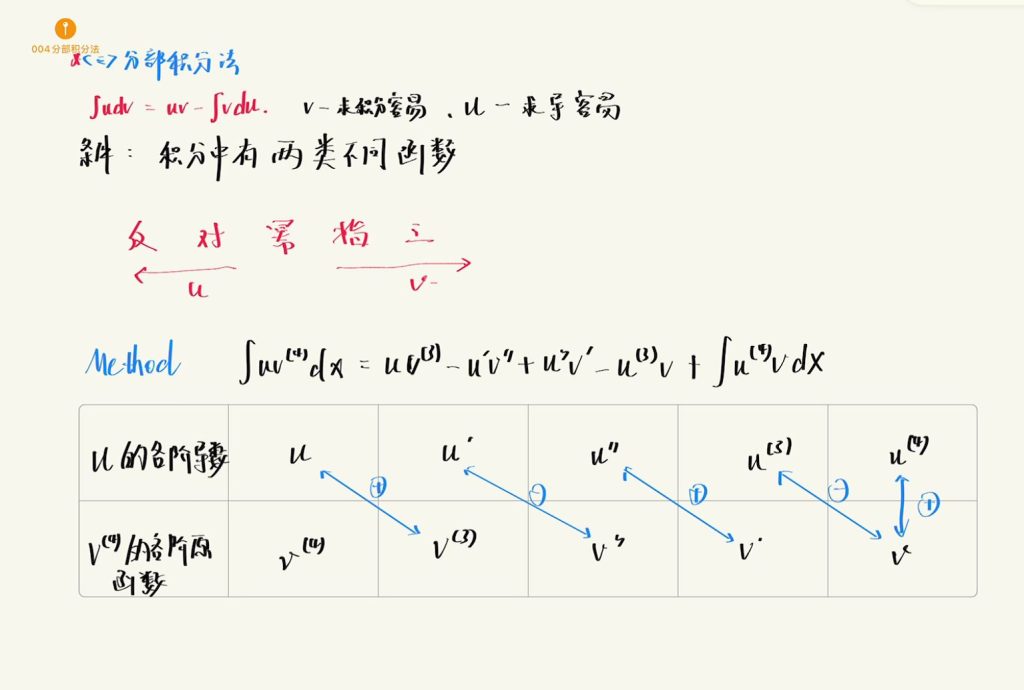 004分部积分法
<=>分部积分法
∫udv = uv - ∫vdu. v-求积分容易、u-求导容易
条件: 积分中有两类不同函数
反 对 幂 指 三
u v-
Method ∫uv⁽⁴⁾dx = uv⁽³⁾ - u'v'' + u''v' - u⁽³⁾v + ∫u⁽⁴⁾vdx
u的各阶导数 u u' u'' u⁽³⁾ u⁽⁴⁾
⊕ ⊖ ⊕ ⊖ ⊕
v⁽⁴⁾的各阶原 v⁽⁴⁾ v⁽³⁾ v'' v' v
函数